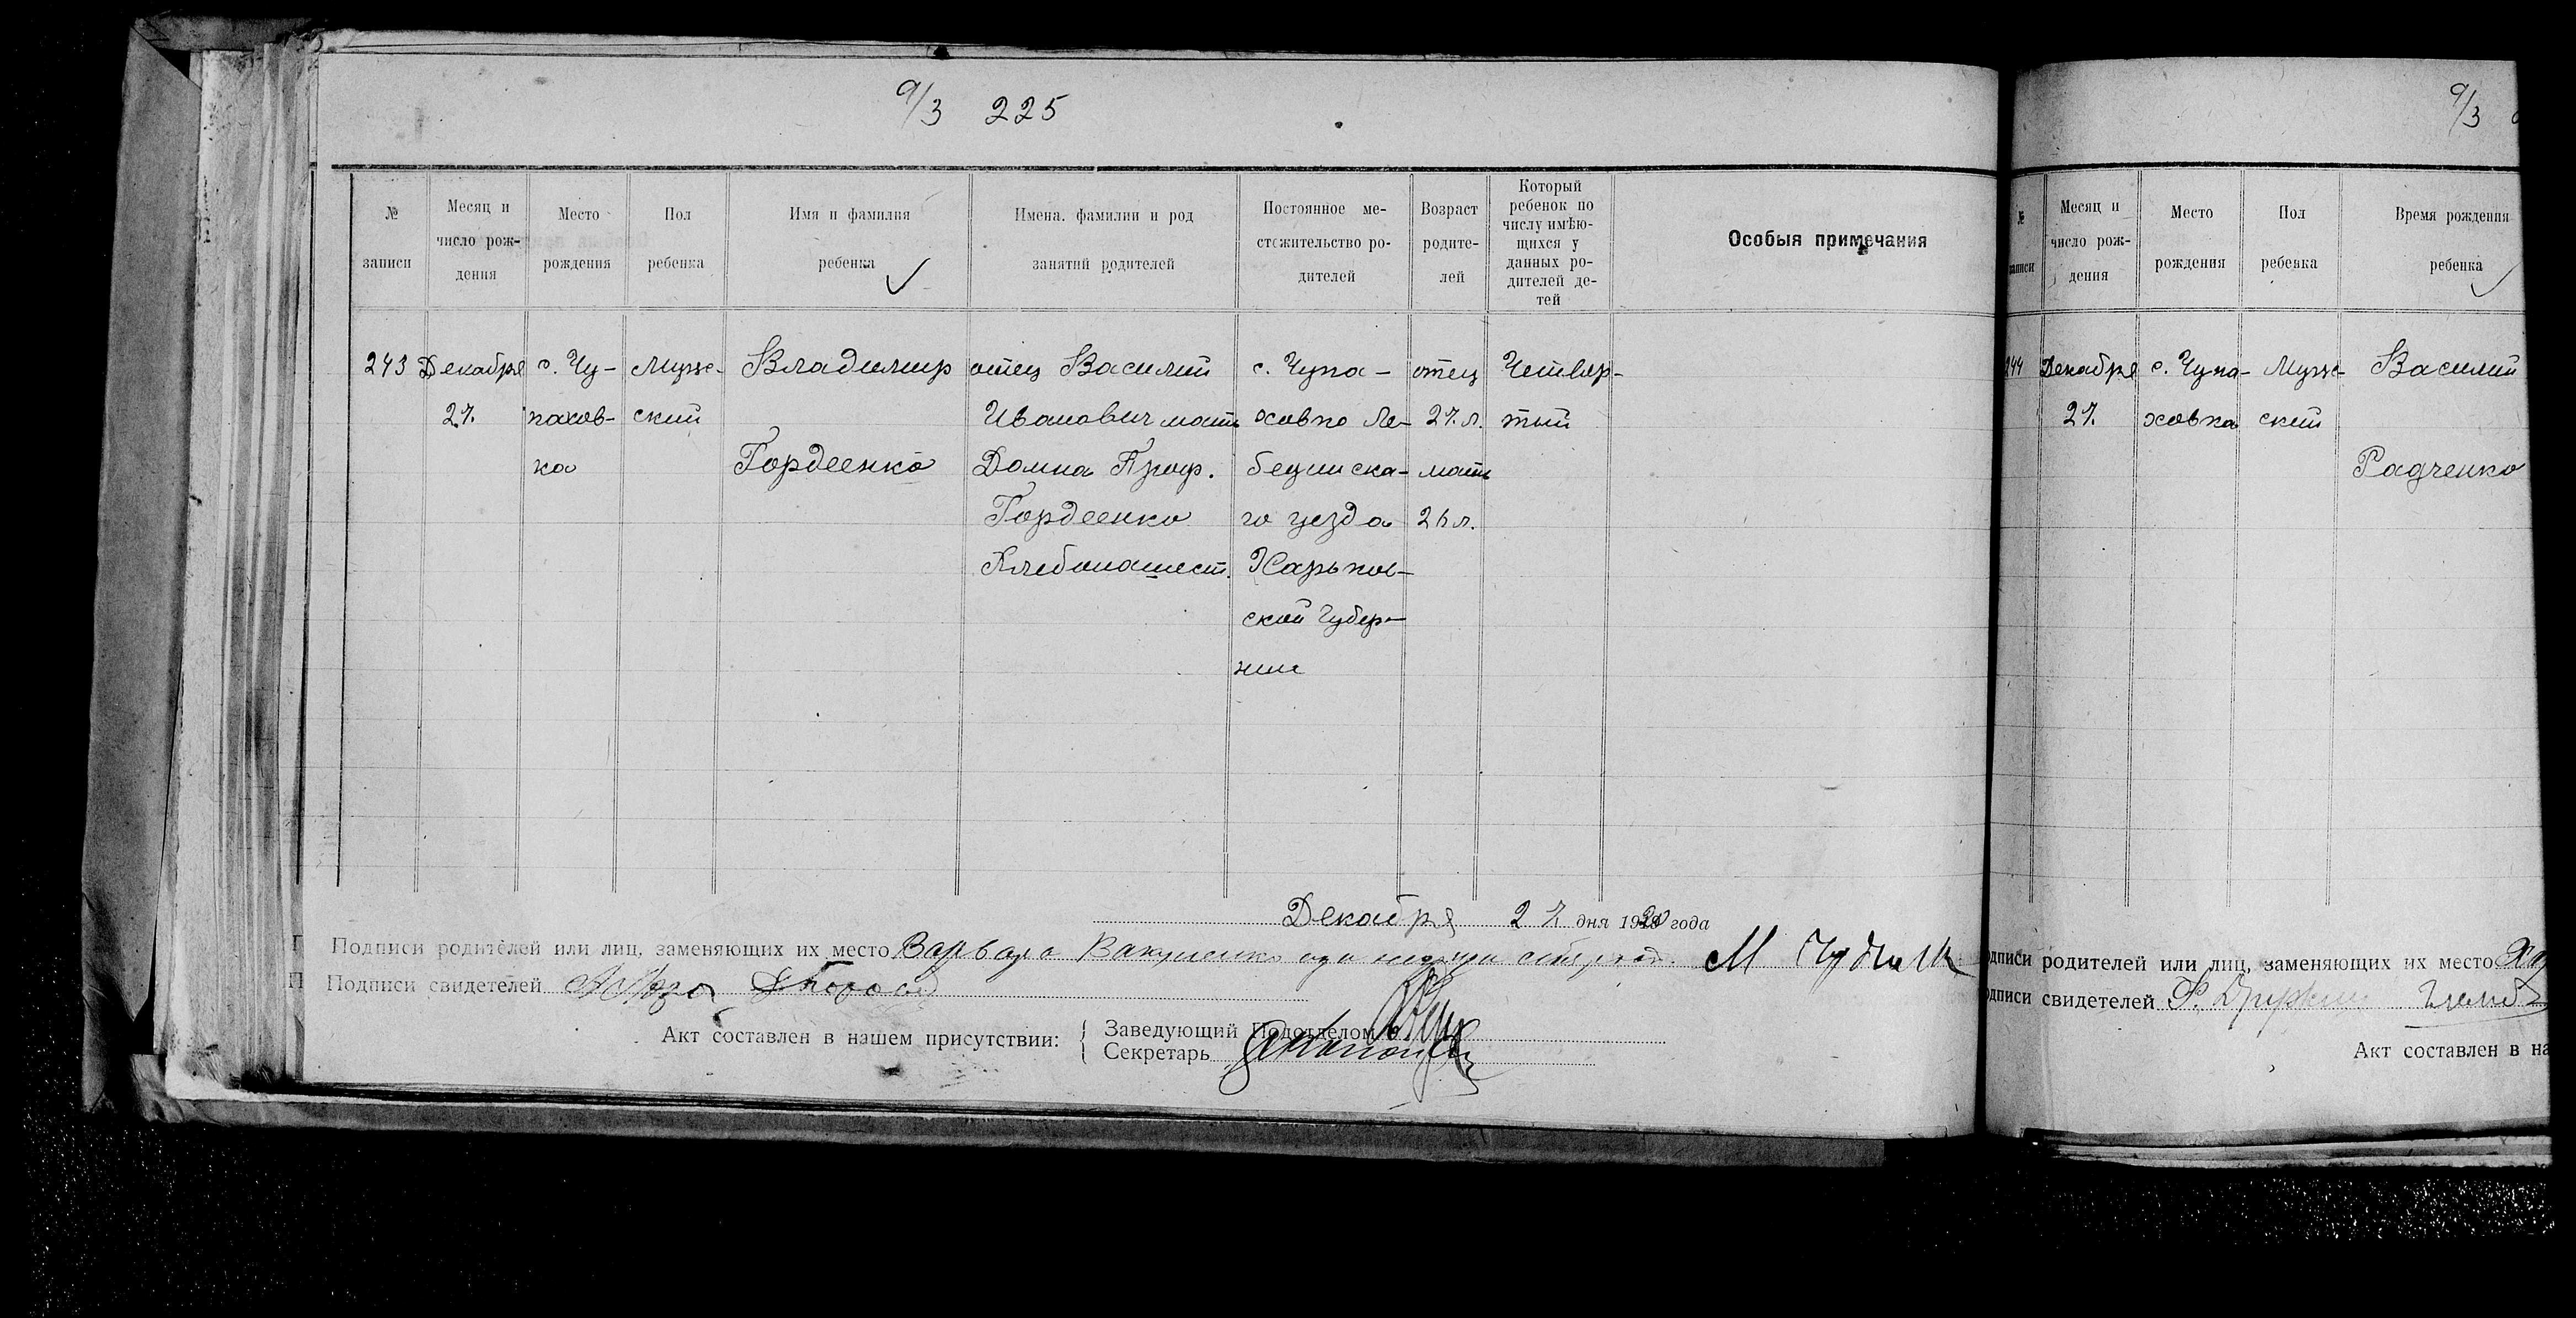 9/3 225
№ записи
Месяц и число рождения
Место рождения
Пол ребенка
Имя и фамилия ребенка
Имена, фамилии и род занятий родителей
Постоянное местожительство родителей
Возраст родителей
Который ребенок по числу имѣющихся у данных родителей детей
Особыя примечания
243 Декабря с. Чу- Мужс- Владимир отец Василий с. Чупа- отец Четвер-
27. пахов- ский Иванович мать ховка Ле- 27 л. тый
ка Гордеенко Домна Проф. бединска- мать
Гордеенко го уезда 26 л.
Хлебопашест. Харьков-
ской губер-
нии
Декабря 27 дня 1920 года
Подписи родителей или лиц, заменяющих их место Варвара
Подписи свидетелей
Акт составлен в нашем присутствии:
Заведующий Подотделом
Секретарь
9/3
№ записи
Месяц и число рождения
Место рождения
Пол ребенка
Время рождения ребенка
244 Декабря с. Чупа- Мужс- Василий
27. ховка ский
Радченко
одписи родителей или лиц, заменяющих их место
одписи свидетелей
Акт составлен в на